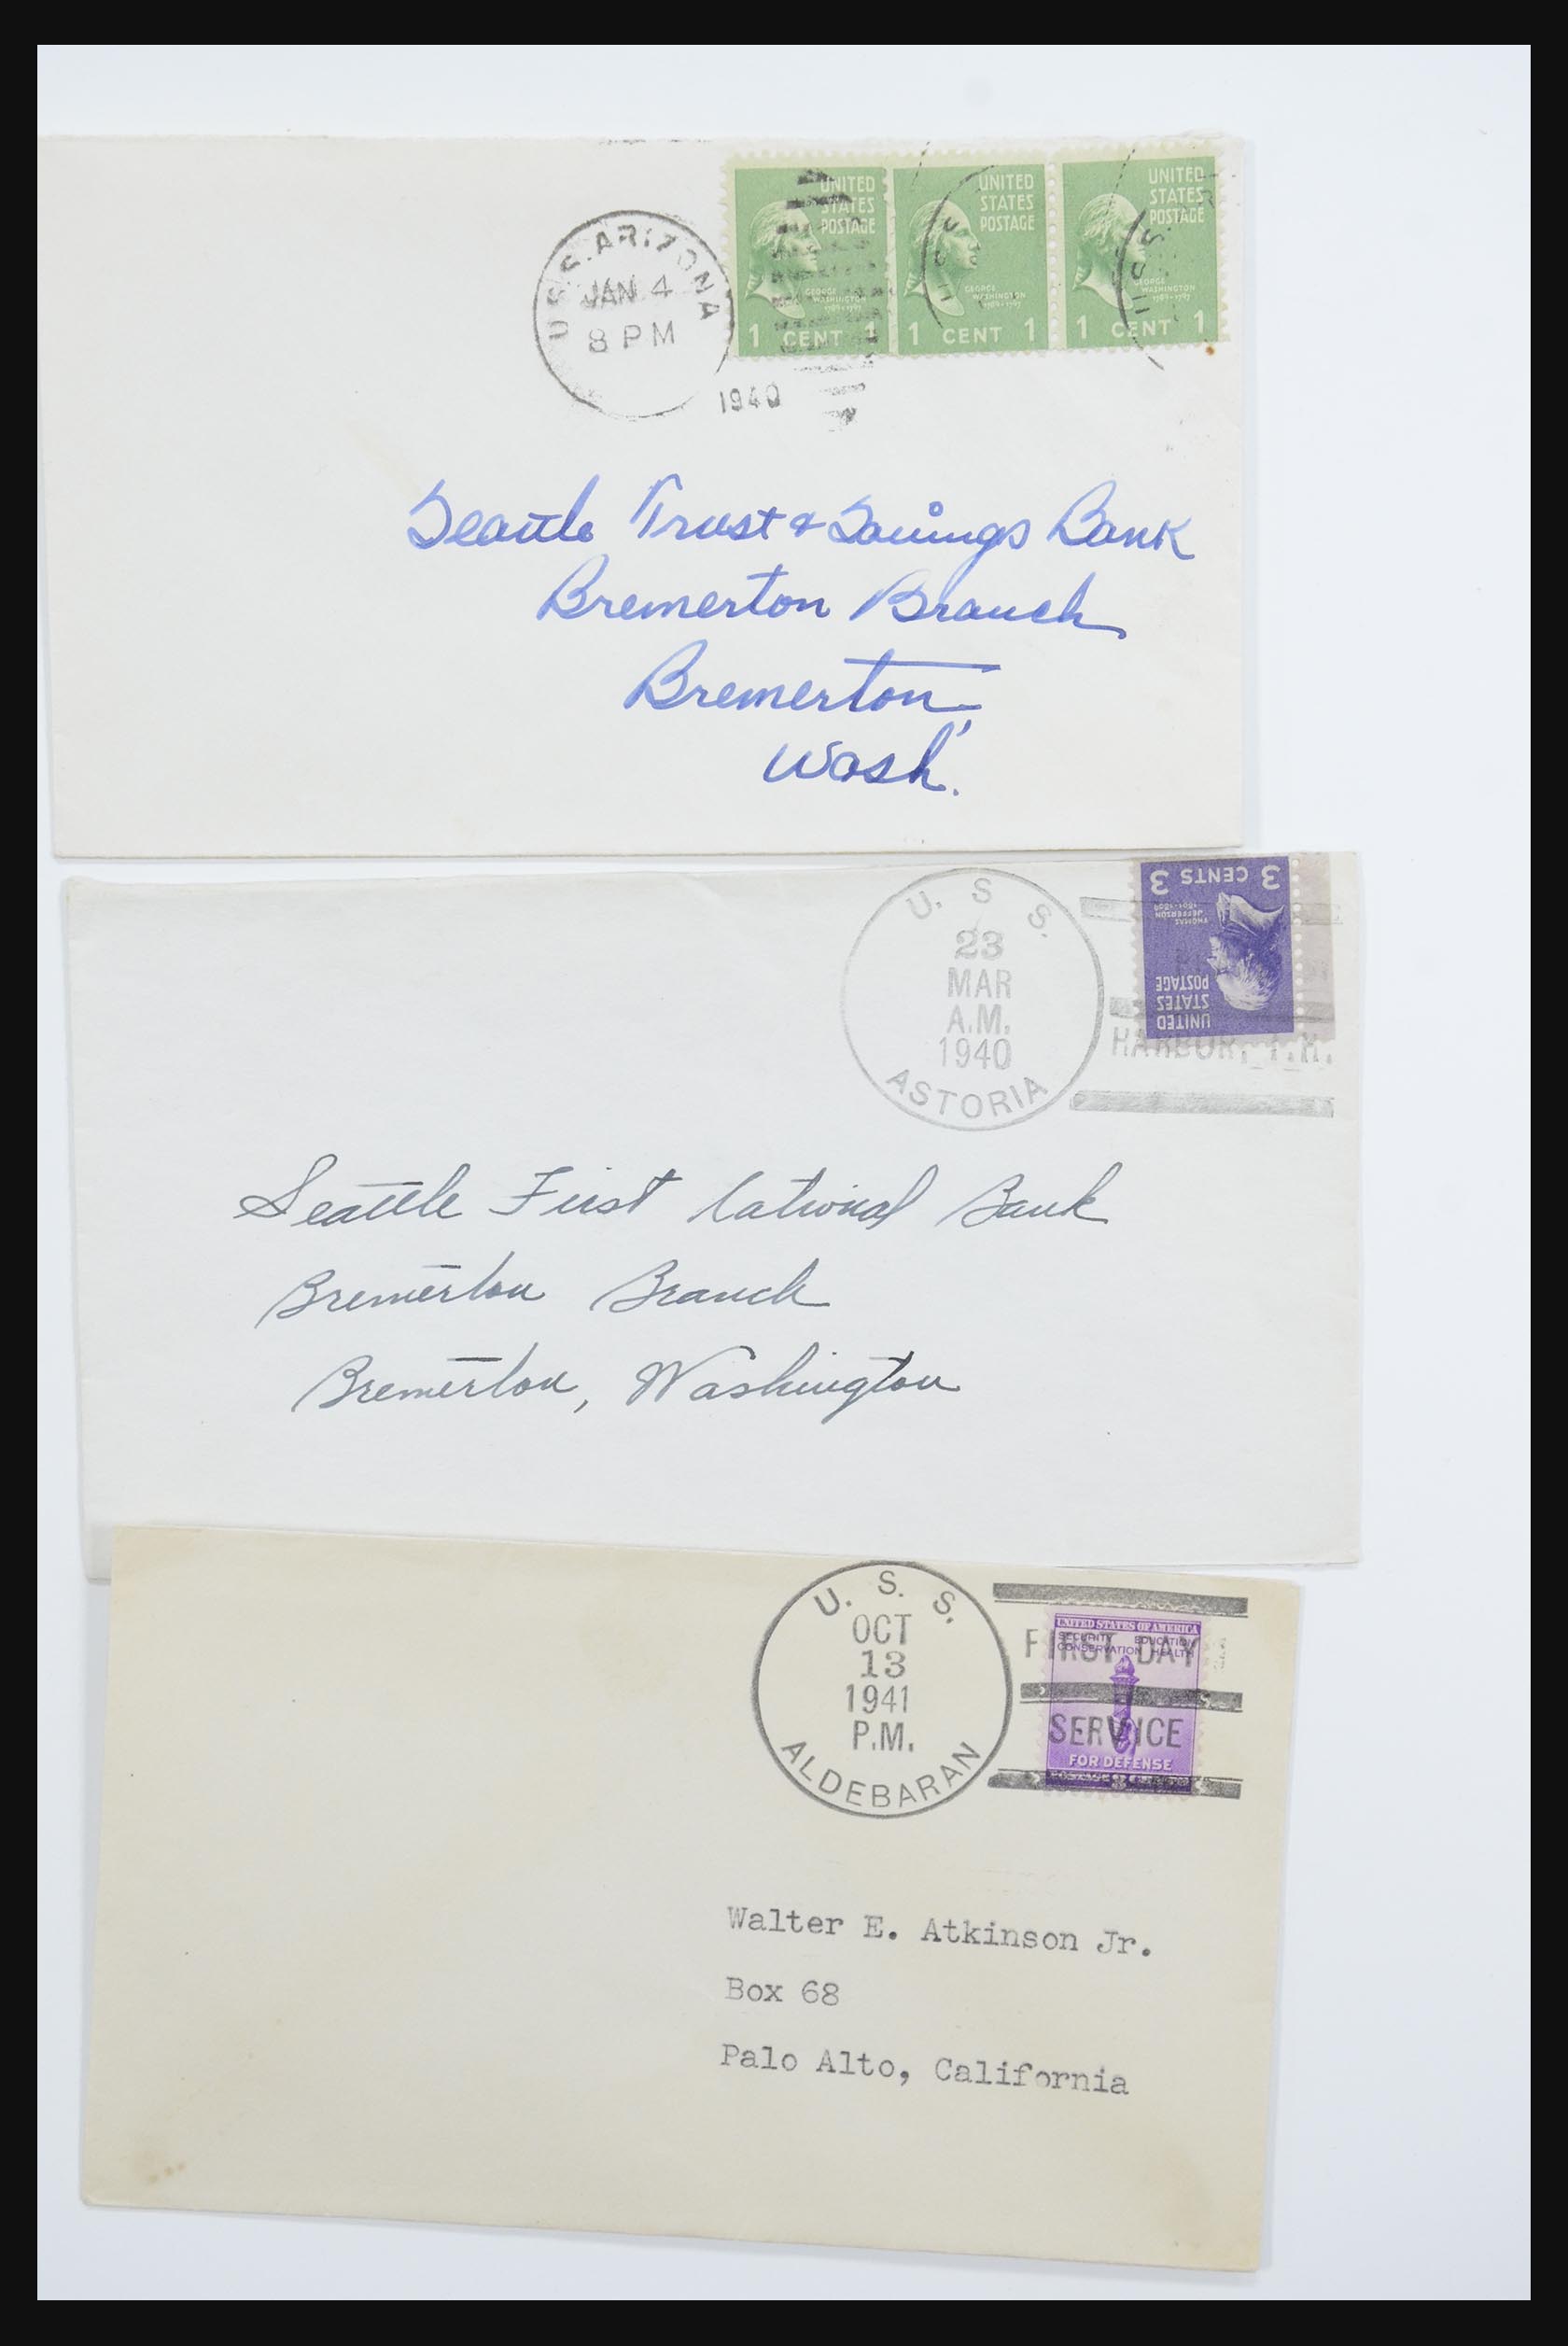 U.S.S. ARIZONA
JAN 4
8 PM
1940
UNITED
STATES
POSTAGE
GEORGE
WASHINGTON
1789-1797
1 CENT 1
UNITED
STATES
POSTAGE
GEORGE
WASHINGTON
1789-1797
1 CENT 1
UNITED
STATES
POSTAGE
GEORGE
WASHINGTON
1789-1797
1 CENT 1
U.S.S.
U.S.S.
Seattle Trust & Savings Bank
Bremerton Branch
Bremerton,
Wash.
U. S. S.
23
MAR
A.M.
1940
ASTORIA
HARBOR, T.H.
UNITED
STATES
POSTAGE
THOMAS
JEFFERSON
1801-1809
3 CENTS 3
Seattle First National Bank
Bremerton Branch
Bremerton, Washington
U. S. S.
OCT
13
1941
P.M.
ALDEBARAN
FIRST DAY
SERVICE
UNITED STATES OF AMERICA
SECURITY EDUCATION
CONSERVATION HEALTH
FOR DEFENSE
Walter E. Atkinson Jr.
Box 68
Palo Alto, California